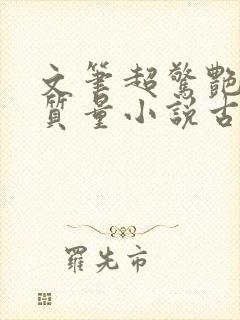 文筆超驚艷
質量小説古
羅先市